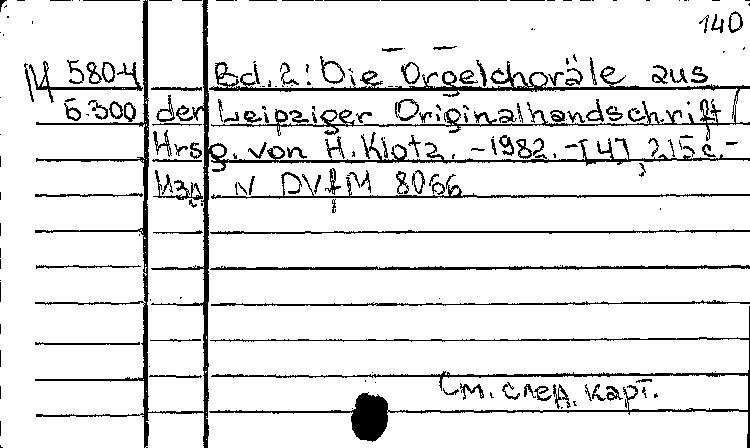 140
М 580-4 Bd. 2: Die Orgelchoräle aus
5.300 der Leipziger Originalhandschrift /
Hrsg. von H. Klotz. - 1982. - [4], 215 с. -
Изд. N DVfM 8066
См. след. карт.